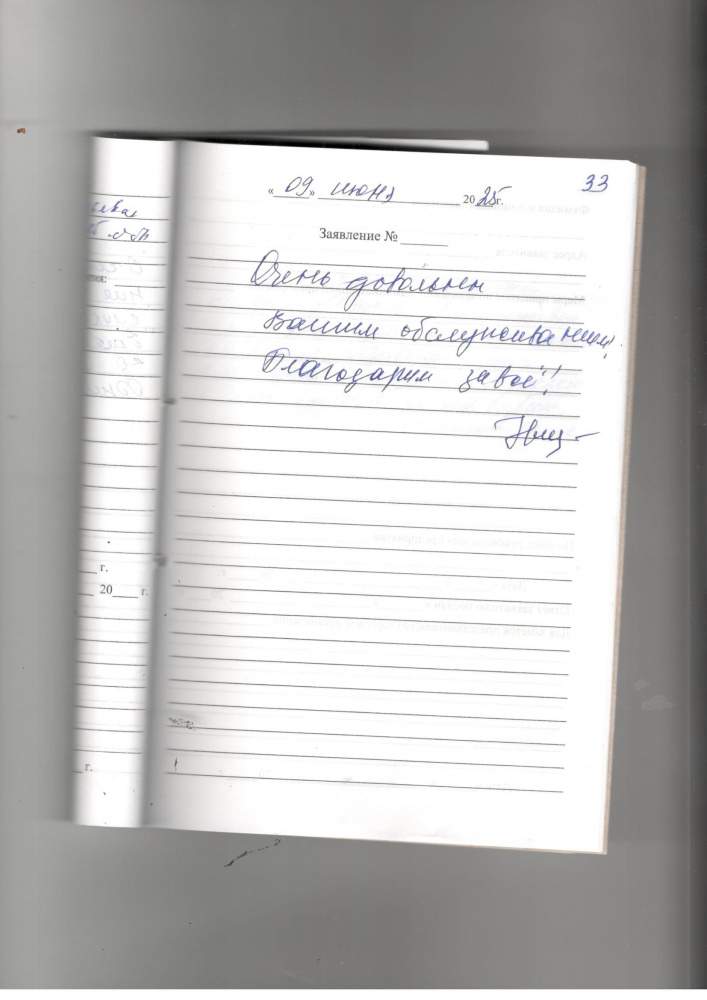 33
« 09 » июня 2025г.
Заявление №
Очень довольны
Вашим обслуживанием!
Благодарим за все!!!
г.
20 г.
г.